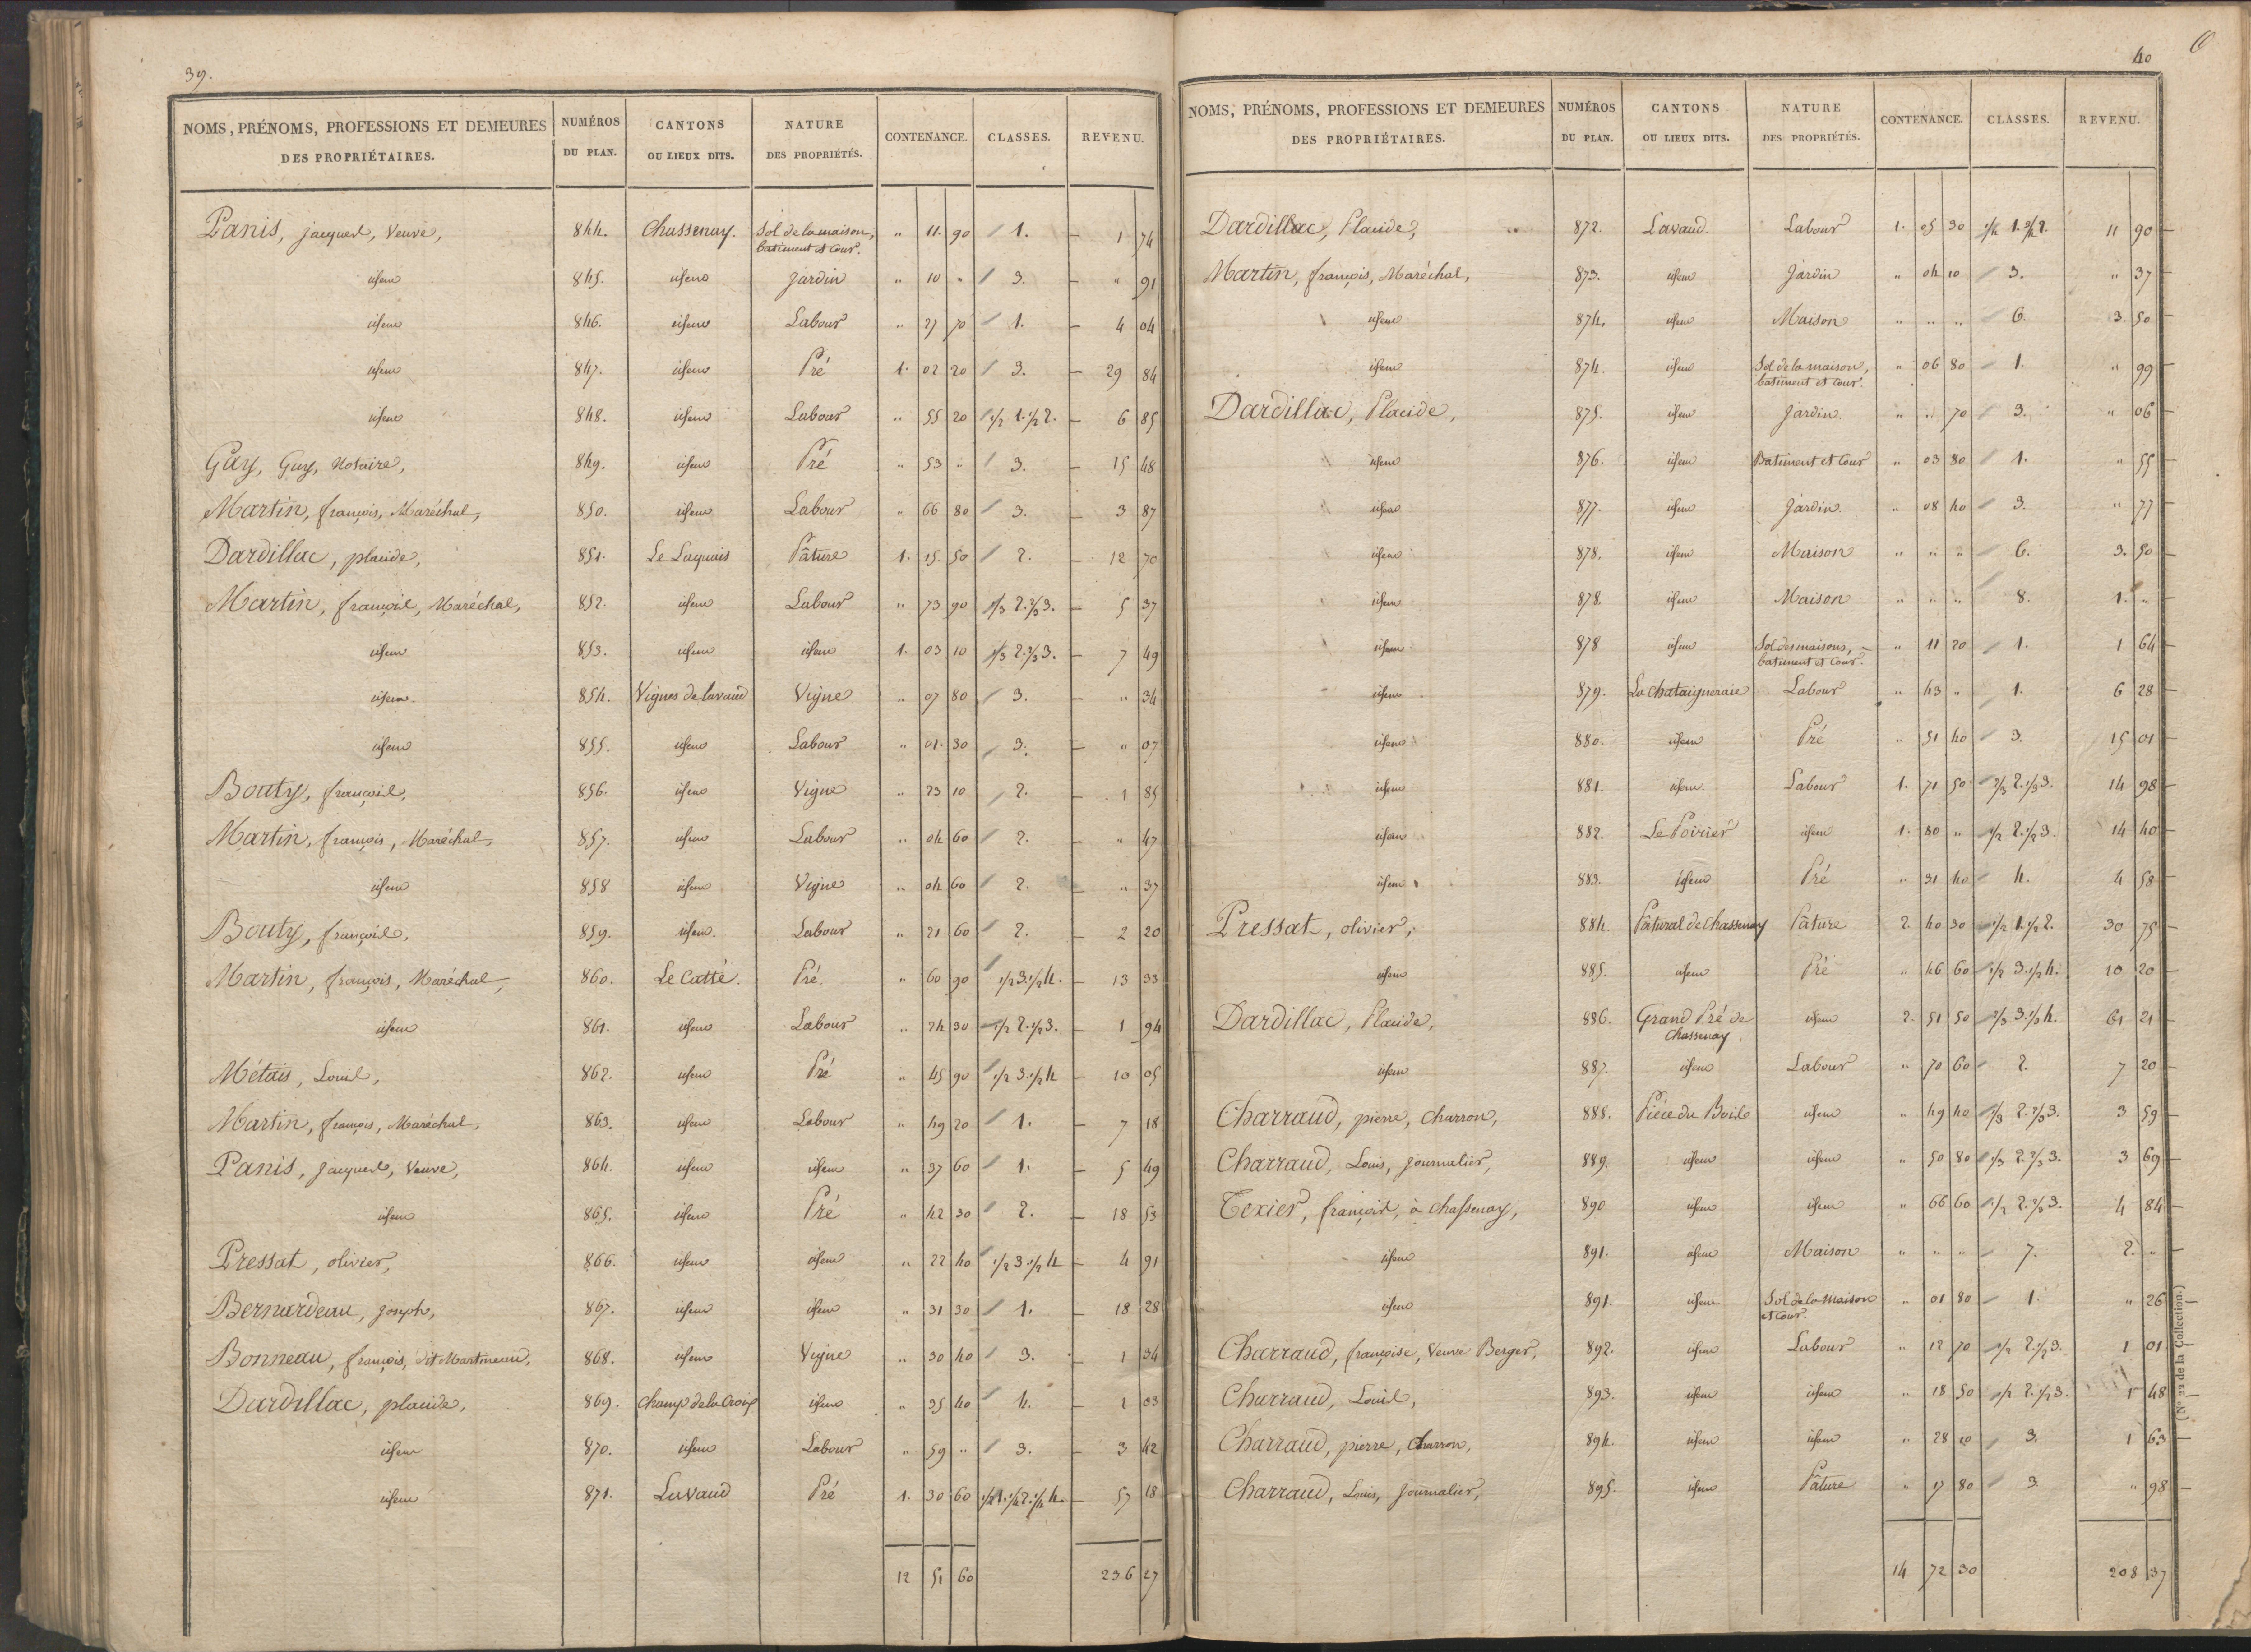 39.
NOMS, PRÉNOMS, PROFESSIONS ET DEMEURES DES PROPRIÉTAIRES. NUMÉROS DU PLAN. CANTONS OU LIEUX DITS. NATURE DES PROPRIÉTÉS. CONTENANCE. CLASSES. REVENU.
Panis, jacques, Veuve, 844. Chassenay. Sol de la maison, batiment et cour. " 11. 90 1. 1 74
idem 845. idem jardin " 10 " 3. " 91
idem 846. idem Labour " 27 70 1. 4 04
idem 847. idem Pré 1. 02 20 3. 29 84
idem 848. idem Labour " 55 20 1/2 1. 1/2 2. 6 85
Guy, Guy, Notaire, 849. idem Pré " 53 " 3. 15 48
Martin, françois, Maréchal, 850. idem Labour " 66 80 3. 3 87
Dardillac, placide, 851. Le Laquais Pâture 1. 15 50 2. 12 70
Martin, françois, Maréchal, 852. idem Labour " 73 90 1/3 2. 2/3 3. 5 37
idem 853. idem idem 1. 03 10 1/3 2. 2/3 3. 7 49
idem. 854. Vignes de lavaud Vigne " 07 80 3. " 34
idem 855. idem Labour " 01. 30 3. " 07
Bouty, françois, 856. idem Vigne " 23 10 2. 1 85
Martin, françois, Maréchal, 857. idem Labour " 04 60 2. " 47
idem 858 idem Vigne " 04 60 2. " 37
Bouty, françois, 859. idem. Labour " 21 60 2. 2 20
Martin, françois, Maréchal, 860. Le Catté. Pré. " 60 90 1/2 3. 1/2 4. 13 33
idem 861. idem Labour " 24 30 1/2 2. 1/2 3. 1 94
Métais, Louis, 862. idem Pré " 45 90 1/2 3. 1/2 4 10 05
Martin, françois, Maréchal, 863. idem Labour " 49 20 1. 7 18
Panis, jacques, Veuve, 864. idem idem " 37 60 1. 5 49
idem 865. idem Pré " 42 30 2. 18 53
Pressat, olivier, 866. idem idem " 22 40 1/2 3. 1/2 4 4 91
Bernardeau, joseph, 867. idem idem " 31 30 1. 18 28
Bonneau, françois, dit Martineau, 868. idem Vigne " 30 40 3. 1 34
Dardillac, placide, 869. champ de la Croix idem " 35 40 4. 1 03
idem 870. idem Labour " 59 " 3. 3 42
idem 871. Lavaud Pré 1. 30 60 57 18
12 51 60 236 27
40
NOMS, PRÉNOMS, PROFESSIONS ET DEMEURES DES PROPRIÉTAIRES. NUMÉROS DU PLAN. CANTONS OU LIEUX DITS. NATURE DES PROPRIÉTÉS. CONTENANCE. CLASSES. REVENU.
Dardillac, Placide, 872. Lavaud. Labour 1. 05 30 11 90
Martin, françois, Maréchal, 873. idem Jardin " 04 10 3. " 37
idem 874. idem Maison " " " 6. 3. 50
idem 874. idem Sol de la maison, batiment et cour. " 06 80 1. " 99
Dardillac, Placide, 875. idem jardin. " " 70 3. " 06
idem 876. idem Batiment et Cour " 03 80 1. " 55
idem 877. idem jardin " 08 40 3. " 77
idem 878. idem Maison " " " 6. 3. 50
idem 878. idem Maison " " " 8. 1. "
idem 878 idem Sol des maisons, batiment et cour. " 11 20 1. 1 64
idem 879. La chataigneraie Labour " 43 " 1. 6 28
idem 880. idem Pré " 51 40 3. 15 01
idem 881. idem Labour 1. 71 50 2/3 2. 1/3 3. 14 98
idem 882. Le Poirier idem 1. 80 " 1/2 2. 1/2 3. 14 40
idem 883. idem Pré " 31 40 4. 4 58
Pressat, olivier, 884. Pâtural de Chassenay Pâture 2. 40 30 1/2 1. 1/2 2. 30 75
idem 885. idem Pré " 46 60 1/2 3. 1/2 4. 10 20
Dardillac, Placide, 886. Grand Pré de Chassenay. idem 2. 51 50 61 21
idem 887. idem Labour " 70 60 2. 7 20
Charraud, pierre, charron, 888. Pièce du Bois idem " 49 40 1/3 2. 2/3 3. 3 59
Charraud, Louis, journalier, 889. idem idem " 50 80 1/3 2. 2/3 3. 3 69
Texier, françois, à chassenay, 890 idem idem " 66 60 4 84
idem 891. idem Maison " " " 7. 2. "
idem 891. idem Sol de la Maison et cour. " 01 80 1. " 26
Charraud, françoise, Veuve Berger, 892. idem Labour " 12 70 1/2 2. 1/2 3. 1 01
Charraud, Louis, 893. idem idem " 18 50 1/2 2. 1/2 3. 1 48
Charraud, pierre, charron, 894. idem idem " 28 20 3. 1 63
Charraud, Louis, journalier, 895. idem Pâture " 17 80 3 " 98
14 72 30 208 37
(N° 22 de la Collection.)